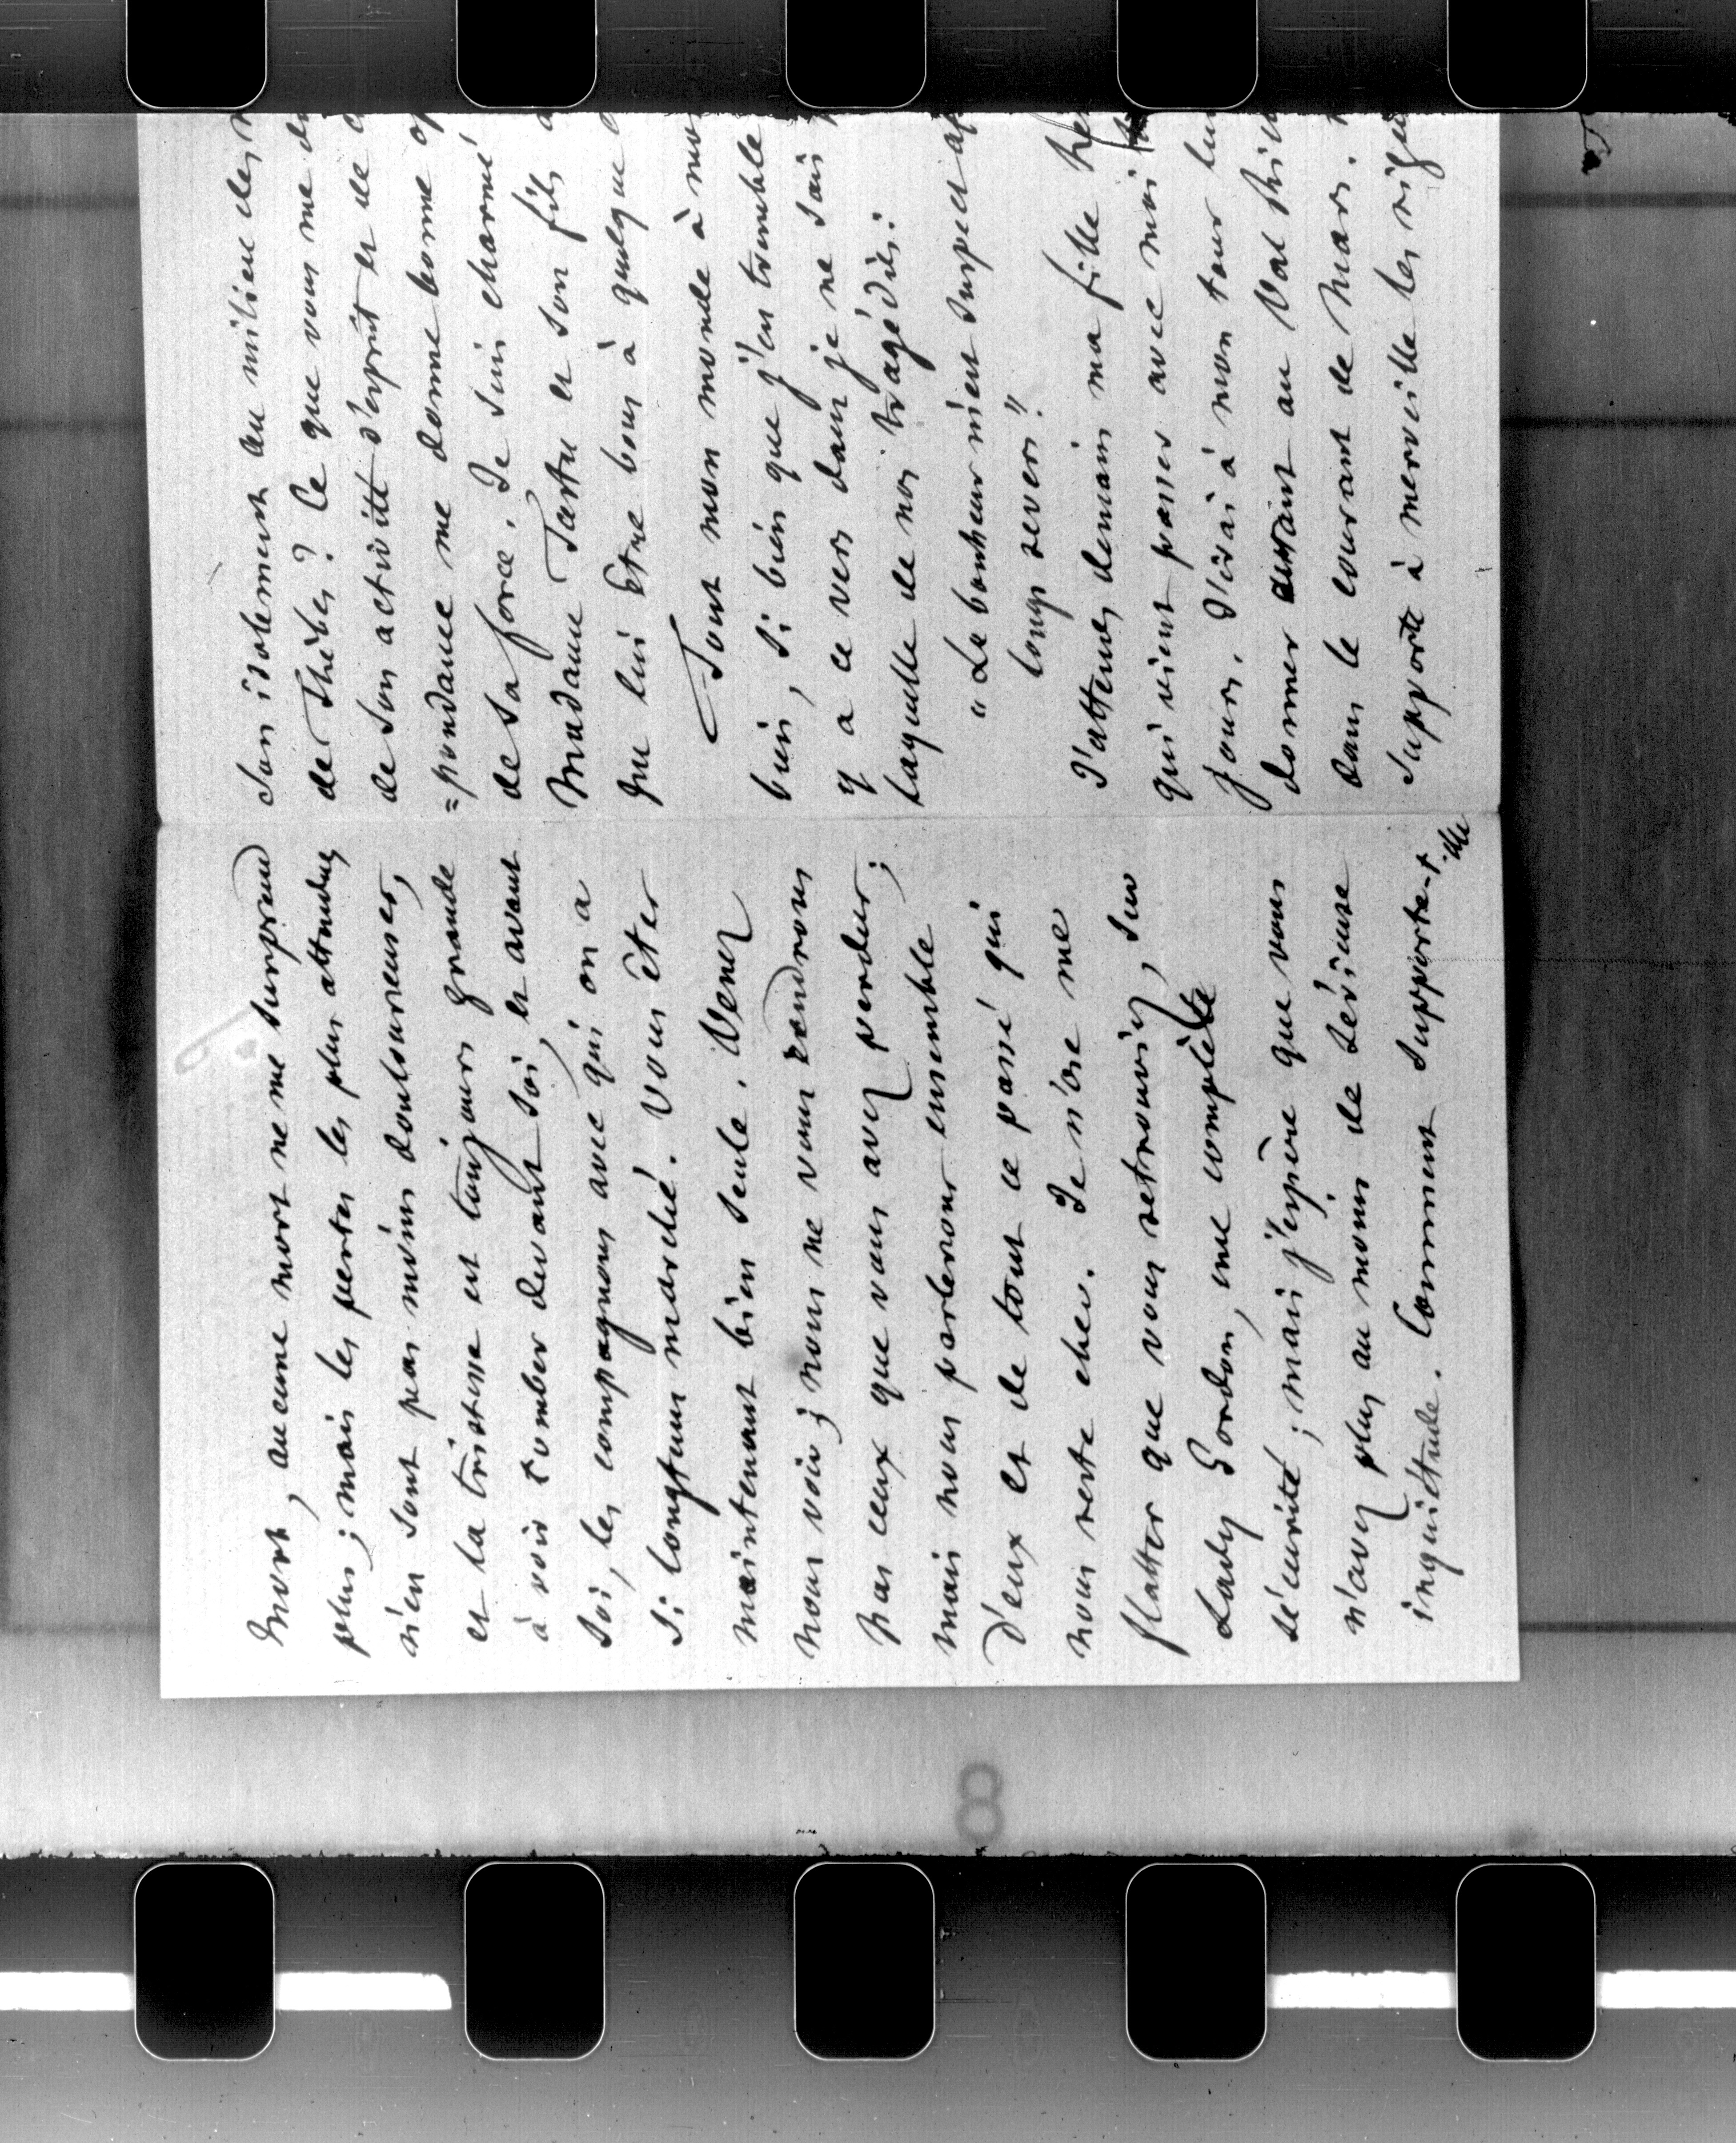 mort, aucune mort ne me surprend
plus ; mais les pertes les plus attendues
n'en sont pas moins douloureuses,
et la tristesse est toujours grande
à voir tomber devant soi, et avant
soi, les compagnons avec qui on a
si longtems marché. Vous êtes
maintenant bien seule. Venez
nous voir ; nous ne vous rendrons
pas ceux que vous avez perdus ;
mais nous parlerons ensemble
d'eux et de tout ce passé qui
nous reste cher. Je n'ose me
flatter que vous retrouviez, sur
Lady Gordon, une complète
sécurité ; mais j'espère que vous
n'avez plus au moins de sérieuse
inquiétude. Comment supporte-t-elle
son isolement au milieu des
de Thèbes ? Ce que vous me
de son activité d'esprit et de
=pondance me donne bonne
de sa force. Je suis charmé
Madame Tastu et son fils
que lui être bons à quelque
Tout mon monde à moi
bien, si bien que j'en tremble
y a ce vers dans je ne sais
laquelle de nos tragédies :
"Le bonheur m'est suspect
longs revers."
J'attends demain ma fille
qui vient passer avec moi
jours. J'irai à mon tour
donner autant au Val Richer
dans le courant de Mars.
supporte à merveille les
8